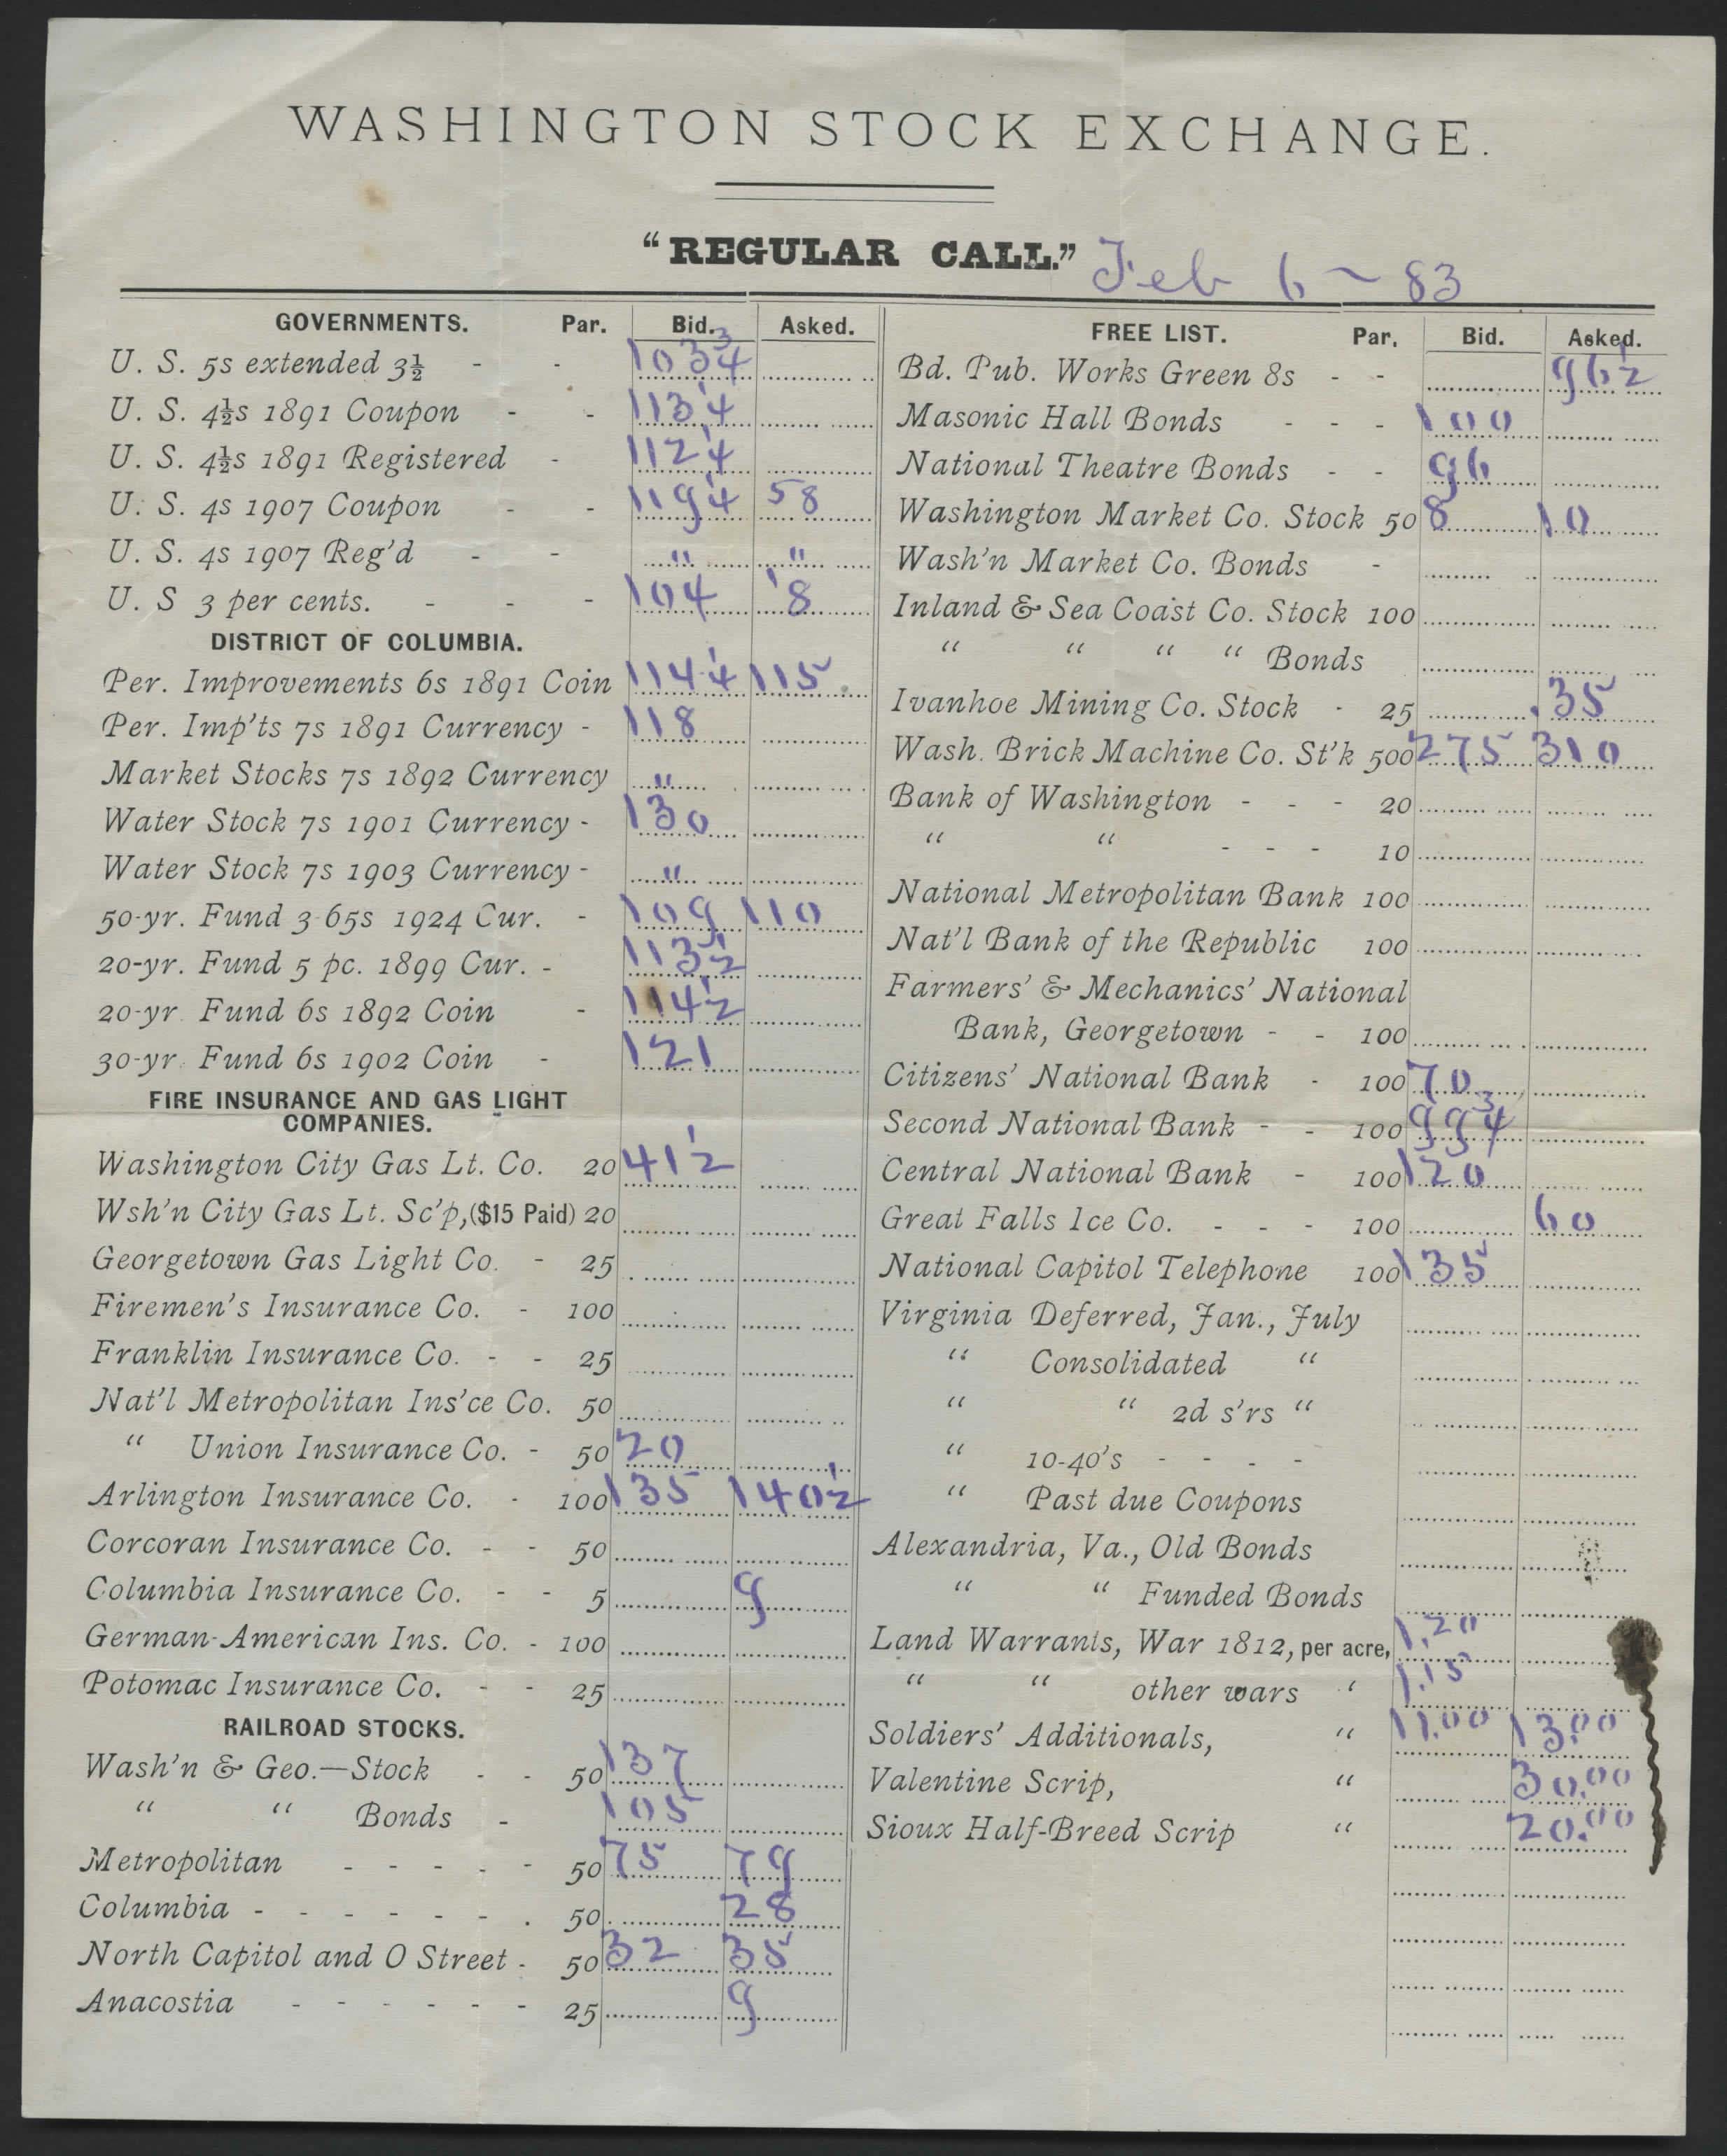 WASHINGTON STOCK EXCHANGE.
"REGULAR CALL." Feb 6 ~ 83
GOVERNMENTS. Par. Bid. Asked.
U. S. 5s extended 3½ - - 103¾
U. S. 4½s 1891 Coupon - - 113¼
U. S. 4½s 1891 Registered - 112¼
U. S. 4s 1907 Coupon - - 119¼ 5/8
U. S. 4s 1907 Reg'd - - " "
U. S 3 per cents. - - - 104 1/8
DISTRICT OF COLUMBIA.
Per. Improvements 6s 1891 Coin 114¼ 115
Per. Imp'ts 7s 1891 Currency - 118
Market Stocks 7s 1892 Currency "
Water Stock 7s 1901 Currency - 130
Water Stock 7s 1903 Currency - "
50-yr. Fund 3-65s 1924 Cur. - 109 110
20-yr. Fund 5 pc. 1899 Cur. - 113½
20-yr. Fund 6s 1892 Coin - 114½
30-yr. Fund 6s 1902 Coin - 121
FIRE INSURANCE AND GAS LIGHT
COMPANIES.
Washington City Gas Lt. Co. 20 41½
Wsh'n City Gas Lt. Sc'p, ($15 Paid) 20
Georgetown Gas Light Co. - 25
Firemen's Insurance Co. - 100
Franklin Insurance Co. - - 25
Nat'l Metropolitan Ins'ce Co. 50
" Union Insurance Co. - 50 20
Arlington Insurance Co. - 100 135 140½
Corcoran Insurance Co. - - 50
Columbia Insurance Co. - - 5 9
German-American Ins. Co. - 100
Potomac Insurance Co. - - 25
RAILROAD STOCKS.
Wash'n & Geo.—Stock - - 50 137
" " Bonds - 105
Metropolitan - - - - - 50 75 79
Columbia - - - - - - . 50 28
North Capitol and O Street - 50 32 35
Anacostia - - - - - - 25 9
FREE LIST. Par. Bid. Asked.
Bd. Pub. Works Green 8s - - 96½
Masonic Hall Bonds - - - 100
National Theatre Bonds - - 96
Washington Market Co. Stock 50 8 10
Wash'n Market Co. Bonds -
Inland & Sea Coast Co. Stock 100
" " " " Bonds
Ivanhoe Mining Co. Stock - 25 .35
Wash. Brick Machine Co. St'k 500 275 310
Bank of Washington - - - 20
" " - - - 10
National Metropolitan Bank 100
Nat'l Bank of the Republic 100
Farmers' & Mechanics' National
Bank, Georgetown - - 100
Citizens' National Bank - 100 70
Second National Bank - - 100 99¾
Central National Bank - 100 120
Great Falls Ice Co. - - - 100 60
National Capitol Telephone 100 135
Virginia Deferred, Jan., July
" Consolidated "
" " 2d s'rs "
" 10-40's - - - -
" Past due Coupons
Alexandria, Va., Old Bonds
" " Funded Bonds
Land Warrants, War 1812, per acre, 1.20
" " other wars " 1.15
Soldiers' Additionals, " 11.00 13.00
Valentine Scrip, " 30.00
Sioux Half-Breed Scrip " 20.00